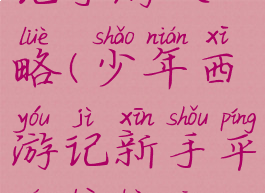 lüè shǎo nián xī
略(少年西
yóu jì xīn shǒu píng
游记新手平